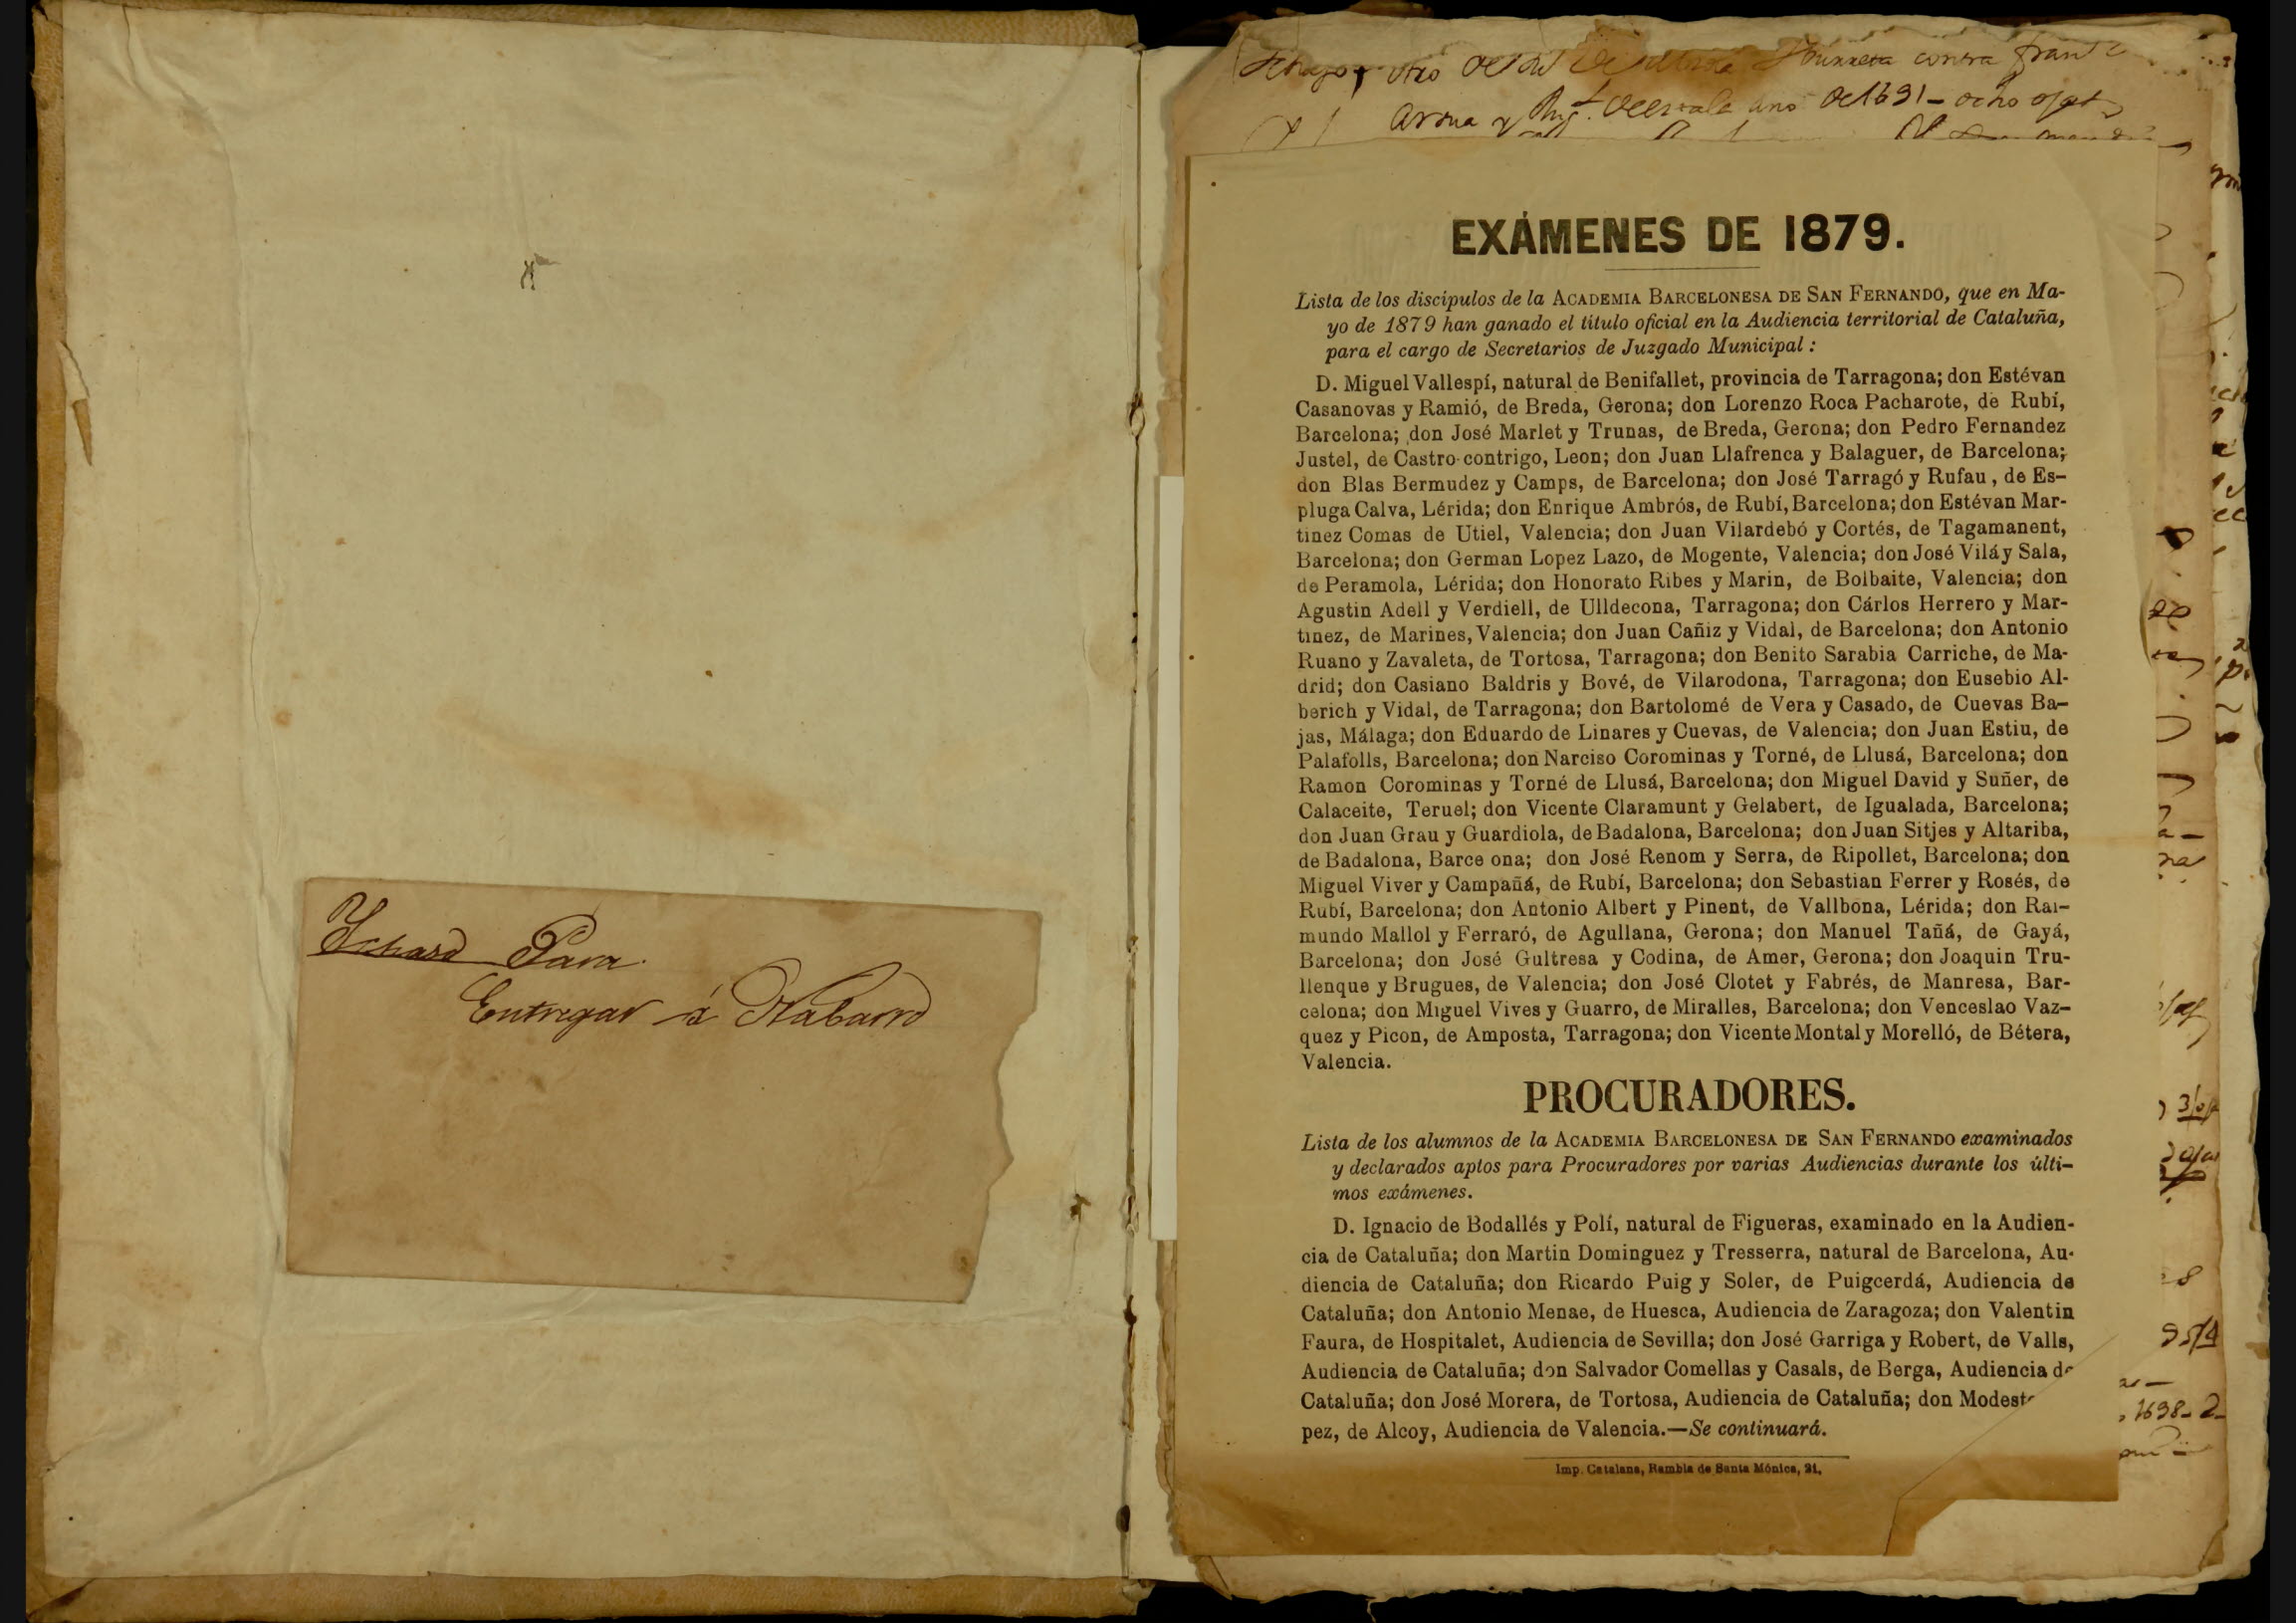 Para
Entregar á Nabarro
otro
contra
año de 1631 - ocho ojas
EXÁMENES DE 1879.
Lista de los discípulos de la ACADEMIA BARCELONESA DE SAN FERNANDO, que en Ma-
yo de 1879 han ganado el título oficial en la Audiencia territorial de Cataluña,
para el cargo de Secretarios de Juzgado Municipal :
D. Miguel Vallespí, natural de Benifallet, provincia de Tarragona; don Estévan
Casanovas y Ramió, de Breda, Gerona; don Lorenzo Roca Pacharote, de Rubí,
Barcelona; don José Marlet y Trunas, de Breda, Gerona; don Pedro Fernandez
Justel, de Castro-contrigo, Leon; don Juan Llafrenca y Balaguer, de Barcelona;
don Blas Bermudez y Camps, de Barcelona; don José Tarragó y Rufau, de Es-
pluga Calva, Lérida; don Enrique Ambrós, de Rubí, Barcelona; don Estévan Mar-
tinez Comas de Utiel, Valencia; don Juan Vilardebó y Cortés, de Tagamanent,
Barcelona; don German Lopez Lazo, de Mogente, Valencia; don José Vilá y Sala,
de Peramola, Lérida; don Honorato Ribes y Marin, de Bolbaite, Valencia; don
Agustin Adell y Verdiell, de Ulldecona, Tarragona; don Cárlos Herrero y Mar-
tinez, de Marines, Valencia; don Juan Cañiz y Vidal, de Barcelona; don Antonio
Ruano y Zavaleta, de Tortosa, Tarragona; don Benito Sarabia Carriche, de Ma-
drid; don Casiano Baldris y Bové, de Vilarodona, Tarragona; don Eusebio Al-
berich y Vidal, de Tarragona; don Bartolomé de Vera y Casado, de Cuevas Ba-
jas, Málaga; don Eduardo de Linares y Cuevas, de Valencia; don Juan Estiu, de
Palafolls, Barcelona; don Narciso Corominas y Torné, de Llusá, Barcelona; don
Ramon Corominas y Torné de Llusá, Barcelona; don Miguel David y Suñer, de
Calaceite, Teruel; don Vicente Claramunt y Gelabert, de Igualada, Barcelona;
don Juan Grau y Guardiola, de Badalona, Barcelona; don Juan Sitjes y Altariba,
de Badalona, Barce ona; don José Renom y Serra, de Ripollet, Barcelona; don
Miguel Viver y Campañá, de Rubí, Barcelona; don Sebastian Ferrer y Rosés, de
Rubí, Barcelona; don Antonio Albert y Pinent, de Vallbona, Lérida; don Rai-
mundo Mallol y Ferraró, de Agullana, Gerona; don Manuel Tañá, de Gayá,
Barcelona; don José Gultresa y Codina, de Amer, Gerona; don Joaquin Tru-
llenque y Brugues, de Valencia; don José Clotet y Fabrés, de Manresa, Bar-
celona; don Miguel Vives y Guarro, de Miralles, Barcelona; don Venceslao Vaz-
quez y Picon, de Amposta, Tarragona; don Vicente Montal y Morelló, de Bétera,
Valencia.
PROCURADORES.
Lista de los alumnos de la ACADEMIA BARCELONESA DE SAN FERNANDO examinados
y declarados aptos para Procuradores por varias Audiencias durante los últi-
mos exámenes.
D. Ignacio de Bodallés y Polí, natural de Figueras, examinado en la Audien-
cia de Cataluña; don Martin Dominguez y Tresserra, natural de Barcelona, Au-
diencia de Cataluña; don Ricardo Puig y Soler, de Puigcerdá, Audiencia de
Cataluña; don Antonio Menae, de Huesca, Audiencia de Zaragoza; don Valentin
Faura, de Hospitalet, Audiencia de Sevilla; don José Garriga y Robert, de Valls,
Audiencia de Cataluña; don Salvador Comellas y Casals, de Berga, Audiencia de
Cataluña; don José Morera, de Tortosa, Audiencia de Cataluña; don Modest
pez, de Alcoy, Audiencia de Valencia.—Se continuará.
Imp. Catalana, Rambla de Santa Mónica, 21.
1698-2-